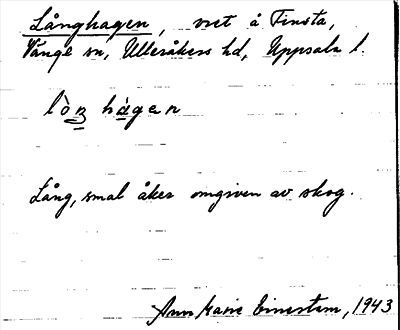 Långhagen, vret å Finsta,
Vänge sn, Ulleråkers hd, Uppsala l.
lòn hagen
Lång, smal åker omgiven av skog.
Ann Marie 1943